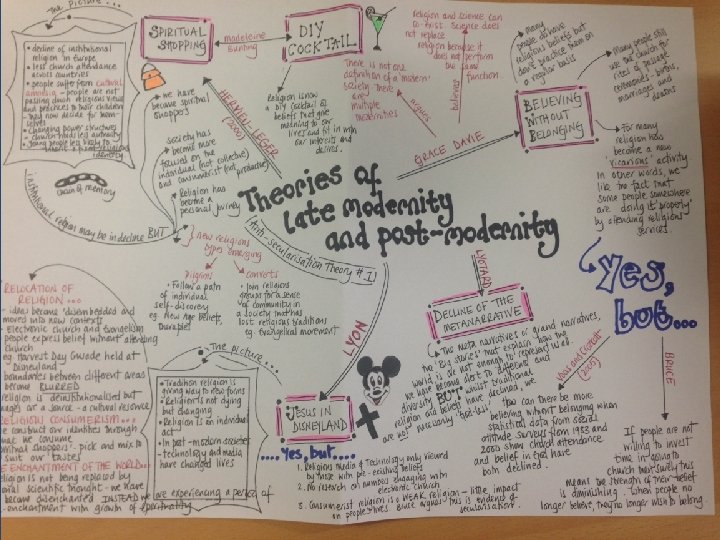 The picture...
• decline of institutional
religion in Europe
• less church attendance
across countries
• people suffer from cultural
amnesia - people are not
passing church religious ritual
and practices to their children
- they now decide for them-
selves
• changing power structures
- church holds less authority
• young people less likely to
religious
identity
chain of memory
institutional religion may be in decline BUT
SPIRITUAL
SHOPPING
madeleine
Bunting
DIY
COCKTAIL
• we have
become spiritual
shoppers
Religion is now
a DIY cocktail of
beliefs that give
meaning to our
lives and fit in with
our interests and
desires.
HERVIEU-LEGER
(2000)
• Society has
become more
focused on the
individual (not collective)
and consumerist (not productive)
• Religion has
become a
personal journey
} new religious
types emerging
pilgrims
• Follow a path
of individual
self-discovery
eg. New Age beliefs,
therapies
converts
• Join religious
groups for a sense
of community in
a society that has
lost religious traditions
eg. Evangelical movement
Theories of
late modernity
and post-modernity
(Anti-secularisation Theory #1)
religion and science can
co-exist. Science does
not replace
religion because it
does not perform
the same
function
believes
There is not one
definition of a 'modern'
society there
are
multiple
modernities
argues
GRACE DAVIE
BELIEVING
WITHOUT
BELONGING
• Many
people do have
religious beliefs but
don't practice them on
a regular basis
• Many people still
use the church for
rites of passage
ceremonies - births,
marriages and
deaths
• For many
religion has
become a new
'vicarious' activity.
In other words, we
like the fact that
some people somewhere
are doing it 'properly'
by attending religious
services.
Yes,
but...
Voas and Crockett
(2005)
You can there be more
believing without belonging when
statistical data from social
attitude surveys from 1983 and
2000 show church attendance
and belief in God have
both declined.
BRUCE
If people are not
willing to invest
time in going to
church that surely this
means the strength of their belief
is diminishing. When people no
longer believe, they no longer wish to belong.
LYOTARD
DECLINE OF THE
METANARRATIVE
The meta narratives or grand narratives,
the 'big stories' that explain how the
world is are not enough to represent us all.
We have become alert to difference and
diversity BUT whilst traditional
religion and beliefs have declined, we
are not necessarily 'God-less'
LYON
JESUS IN
DISNEYLAND
....Yes, but....
1. Religious media & Technology only viewed
by those with pre-existing beliefs
2. No research on numbers engaging with
electronic church
3. Consumerist religion is a WEAK religion - little impact
on people's lives. Bruce argues this is evidence of
secularisation.
The picture...
• Tradition religion is
giving way to new forms
• Religion is not dying
but changing
• Religion is an individual
act
• In post-modern societies
technology and media
have changed lives
RELOCATION OF
RELIGION...
- ideas become 'disembedded and
moved into new contexts
• Electronic church and televangelism
people express belief without attending
church
eg. Harvest Day Crusade held at
Disneyland
boundaries between different areas
become BLURRED
religion is deinstitutionalised but
as a source - a cultural resource
RELIGIOUS CONSUMERISM...
we construct our through
what we consume
'spiritual shoppers'. pick and mix to
suit our tastes
RE ENCHANTMENT OF THE WORLD...
religion is not being replaced by
rational scientific thought - we have
become disenchanted INSTEAD we are experiencing a period of
re-enchantment with growth of spirituality